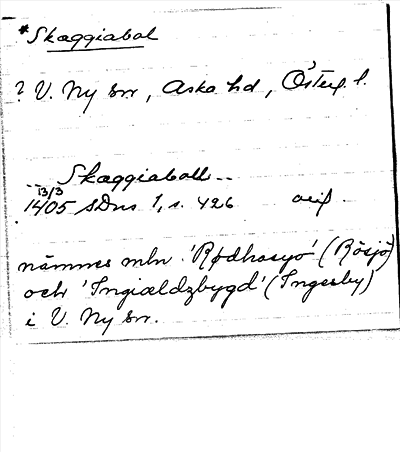 *Skaggiabol
? V. Ny sn, Aska hd, Östg. l.
--Skaggiaboll--
13/3
1405 SDns 1, s. 426 avskr.
nämnes mln 'Rødhasyo' (Rösjö)
och 'Ingiældzbygd' (Ingesby)
i V. Ny sn.